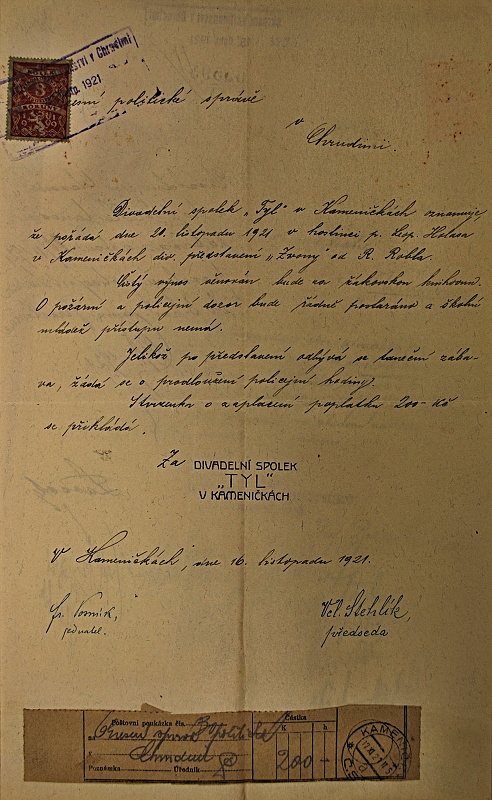 v Chrudimi
1921
3
esní politické správě
v
Chrudimi.
Divadelní spolek „Tyl" v Kameničkách oznamuje,
že pořádá dne 20. listopadu 1921 v hostinci p. Holasa
v Kameničkách div. představení „Zvony" od R. Robla.
Čistý výnos věnován bude na žákovskou knihovnu.
O požární a policejní dozor bude řádně postaráno a školní
mládež přístupu nemá.
Jelikož po představení odbývá se taneční zába-
va, žádá se o prodloužení policejní hodiny.
Stvrzenka o zaplacení poplatku 200– Kč
se přikládá.
Za DIVADELNÍ SPOLEK
„TYL"
V KAMENIČKÁCH
V Kameničkách, dne 16. listopadu 1921.
jednatel.
Vcl. Stehlík,
předseda
Poštovní poukázka čís. Částka
K h
Okresní správa politická
v Chrudimi 200 –
Poznámka Úředník